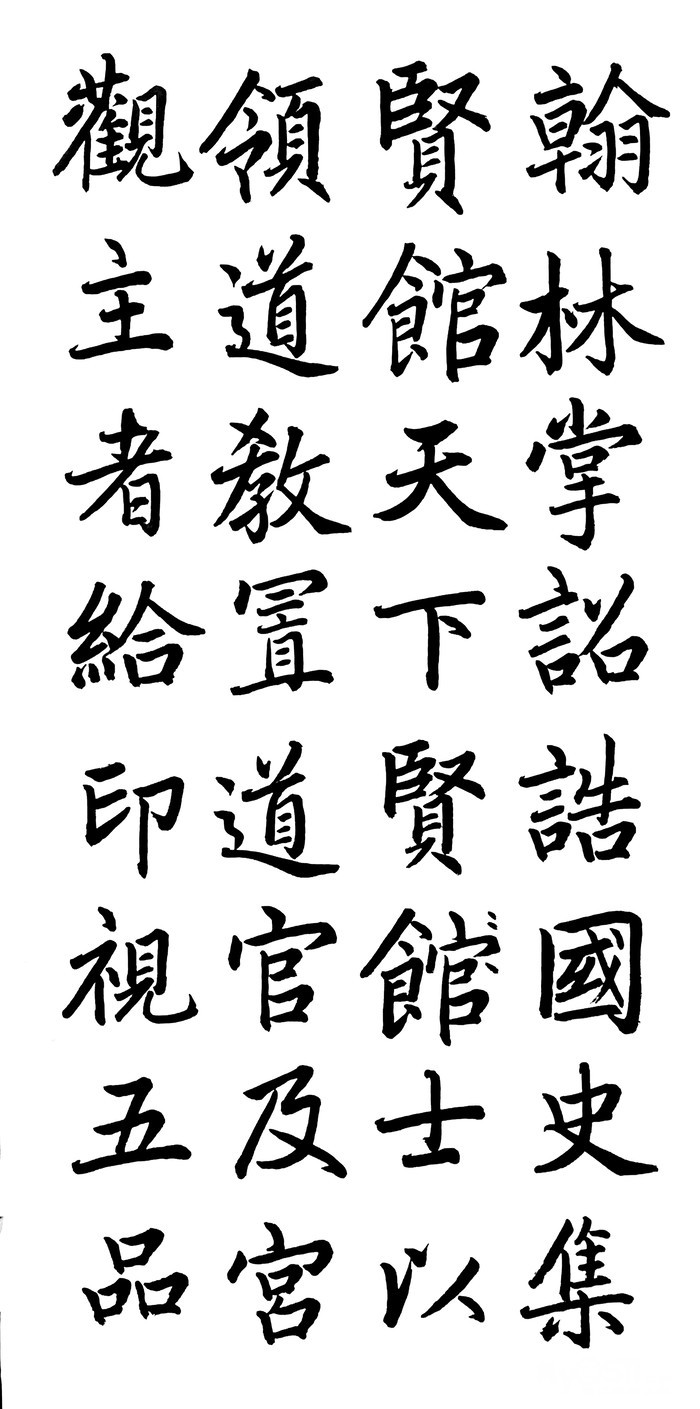 翰林掌詔誥國史集
賢館天下賢館士以
領道教置道官及宮
觀主者給印視五品